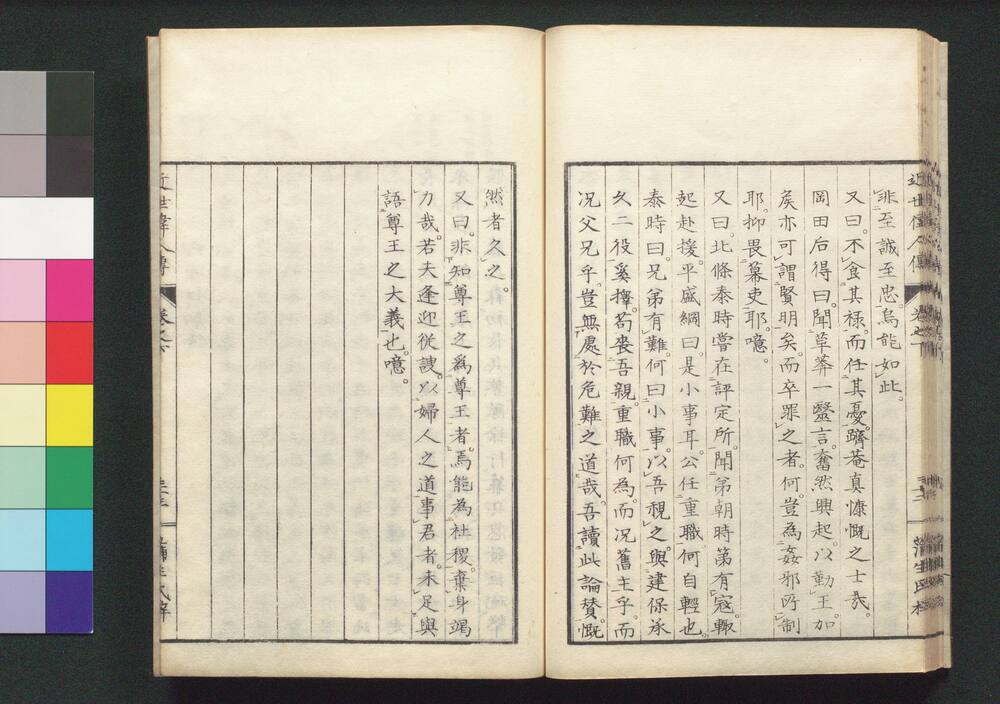 非至誠至忠。烏能如此。
又曰。不食其祿。而任其憂。躋菴真慷慨之士哉。
岡田后得曰。聞草莽一毉言。奮然興起。以勤王。如
矦亦可謂賢明矣。而卒罪之者。何。豈為姦邪所制
耶。抑畏幕吏耶。噫。
又曰。北條泰時嘗在評定所。聞弟朝時第有寇。輙
起赴援。平盛綱曰。是小事耳。公任重職。何自輕也。
泰時曰。兄弟有難。何曰小事。以吾視之。與建保承
久二役奚擇。苟喪吾親。重職何為。而況舊主乎。而
況父兄乎。豈無處於危難之道哉。吾讀此論贊。慨
然者久之。
又曰。非知尊王之為尊王者。焉能為社稷。棄身竭
力哉。若夫逢迎從諛。以婦人之道事君者。未足與
語尊王之大義也。噫。
近世偉人傳